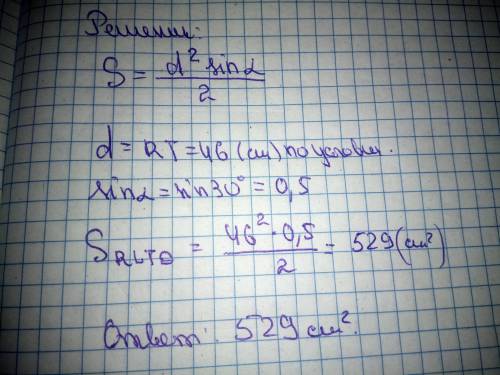 Решение:
S = d² sinα / 2
d = RT = 46 (см) по условию.
sinα = sin30° = 0,5
S RLTO = 46² · 0,5 / 2 = 529 (см²)
Ответ: 529 см².